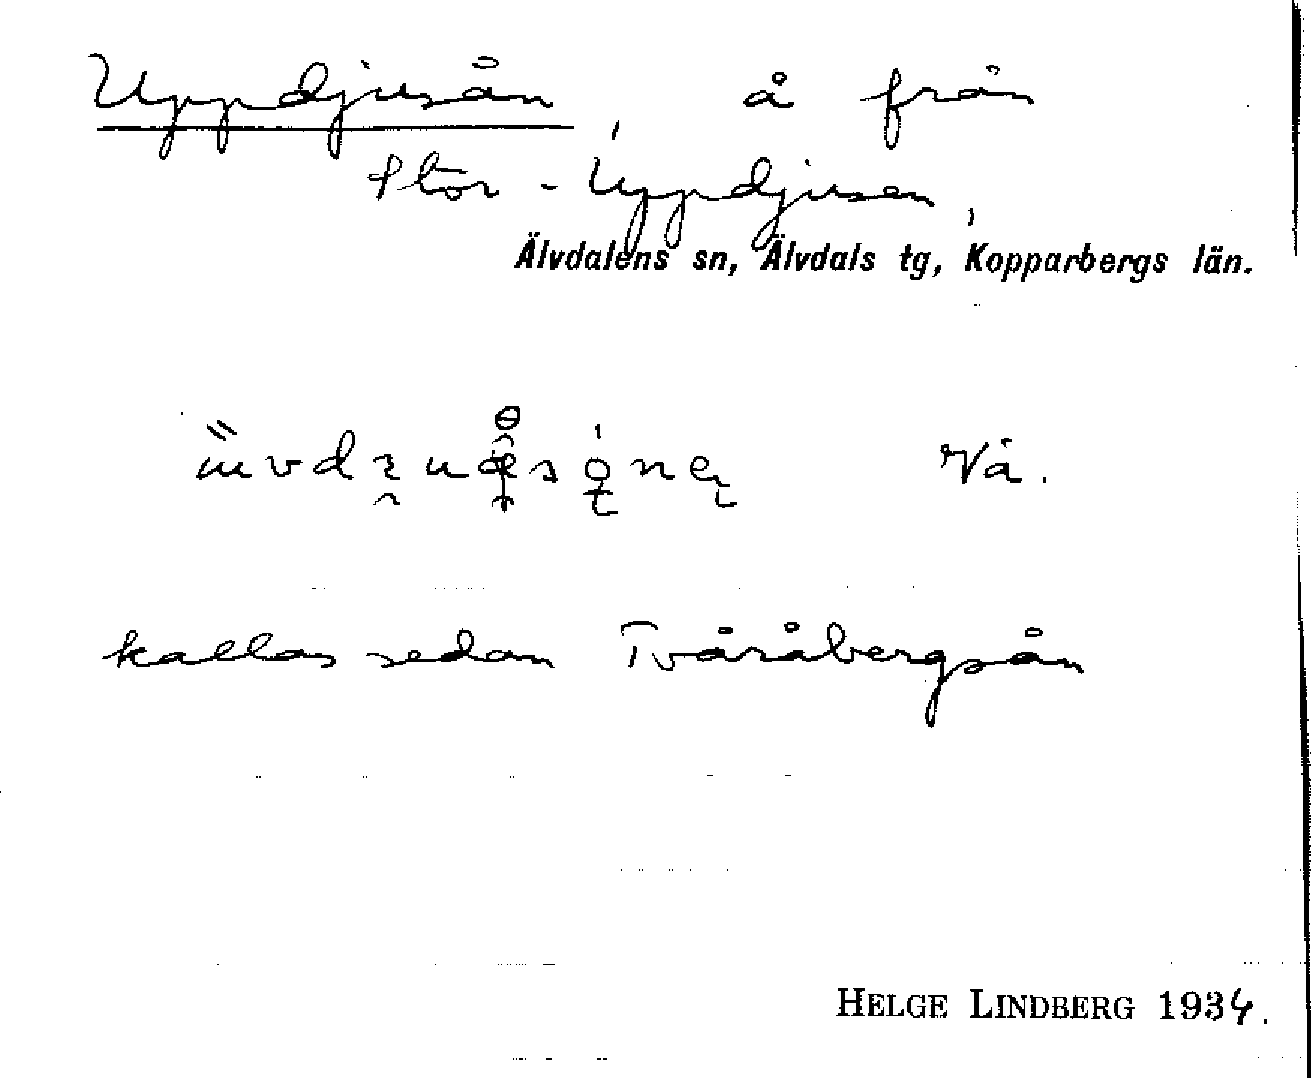 Uppdjusån, å från
Stor-Uppdjusen,
Älvdalens sn, Älvdals tg, Kopparbergs län.
Vå.
kallas sedan Tvåråbergsån
HELGE LINDBERG 1934.